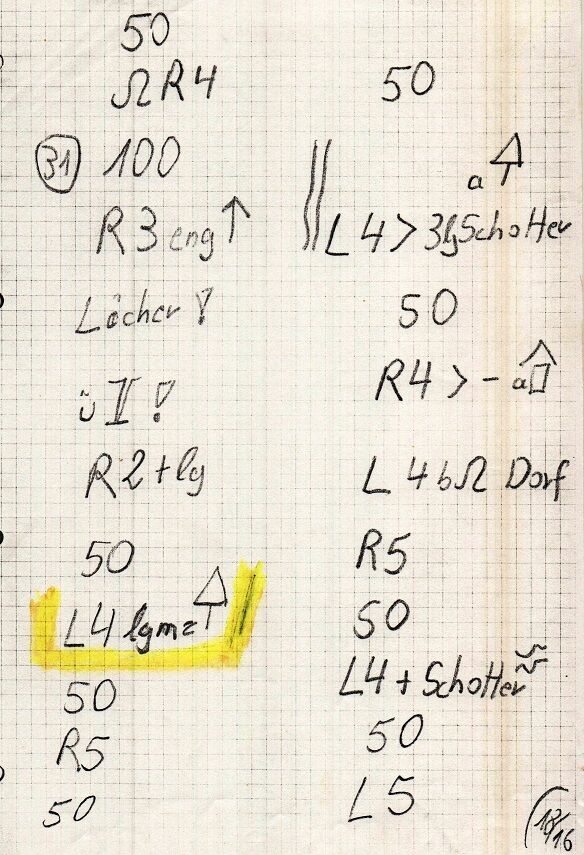 50
Ω R 4
31 100
R 3 eng ↑
Löcher !
ü II !
R 2 + lg
50
L 4 lg m =
50
R5
50
50
a
L 4 > 3 lg Schotter
50
R4 > - a
L 4 b Ω Dorf
R5
50
L4 + Schotter
50
L 5
16